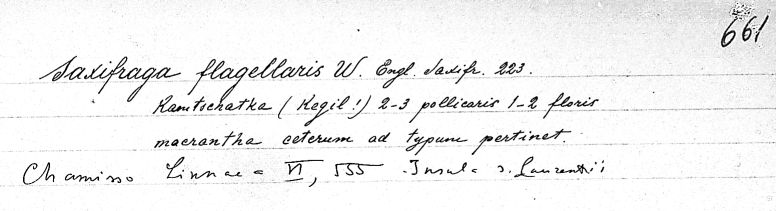 661
Saxifraga flagellaris W. Engl. Saxifr. 223.
Kamtschatka (Kegil!) 2-3 pollicaris 1-2 floris
macrantha ceterum ad typum pertinet.
Chamisso Linnaea VI, 555 Insula s. Laurentii